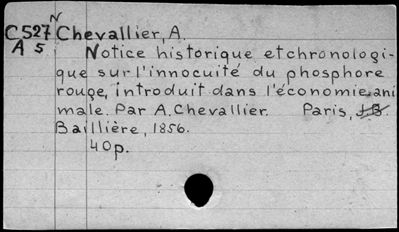 N
C527 Chevallier, A.
A5 Notice historique et chronologi-
que sur l'innocuité du phosphore
rouge, introduit dans l'économie ani
male. Par A. Chevallier. Paris, J.B.
Baillière, 1856.
40p.